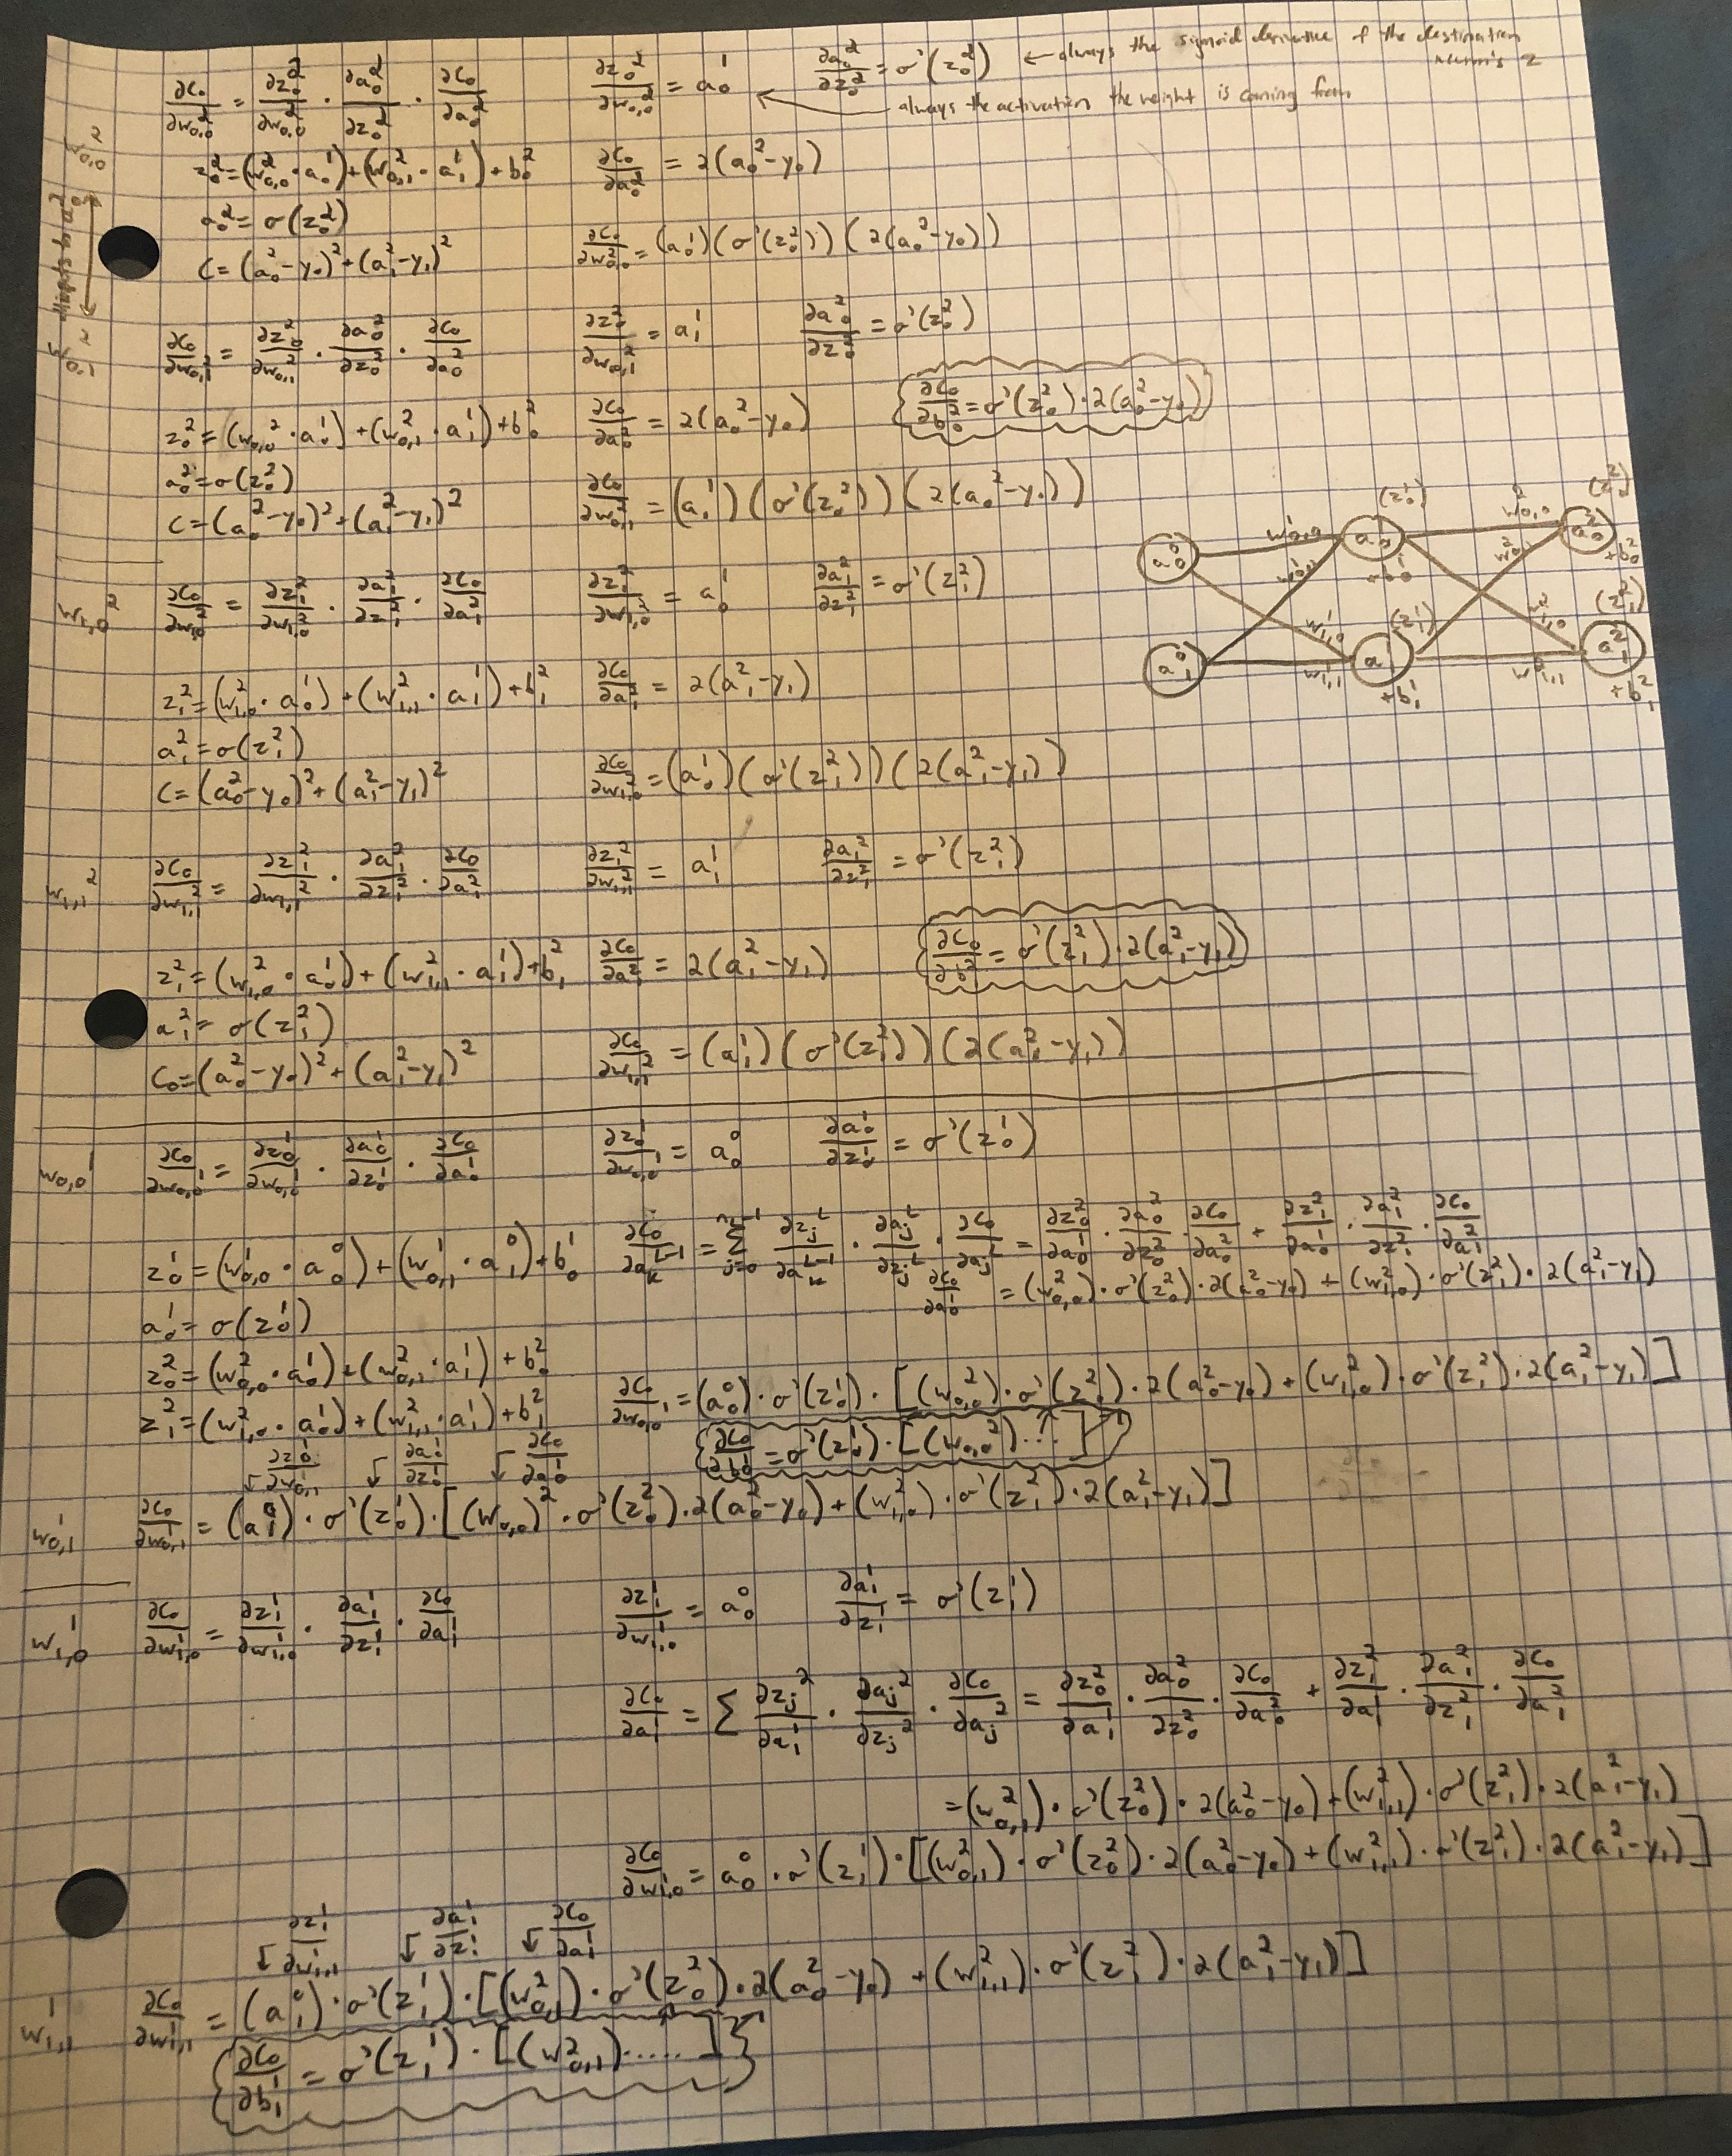 ∂C₀/∂w₀,₀² = ∂z₀²/∂w₀,₀² · ∂a₀²/∂z₀² · ∂C₀/∂a₀²   ∂z₀²/∂w₀,₀² = a₀¹   ∂a₀²/∂z₀² = σ'(z₀²) ← always the sigmoid derivative of the destination
z
← always the activation the weight is coming from
w₀,₀²
z₀² = (w₀,₀² · a₀¹) + (w₀,₁² · a₁¹) + b₀²   ∂C₀/∂a₀² = 2(a₀² - y₀)
a₀² = σ(z₀²)
C = (a₀² - y₀)² + (a₁² - y₁)²   ∂C₀/∂w₀,₀² = (a₀¹)(σ'(z₀²))(2(a₀² - y₀))
w₀,₁²
∂C₀/∂w₀,₁² = ∂z₀²/∂w₀,₁² · ∂a₀²/∂z₀² · ∂C₀/∂a₀²   ∂z₀²/∂w₀,₁² = a₁¹   ∂a₀²/∂z₀² = σ'(z₀²)
z₀² = (w₀,₀² · a₀¹) + (w₀,₁² · a₁¹) + b₀²   ∂C₀/∂a₀² = 2(a₀² - y₀)   ∂C₀/∂b₀² = σ'(z₀²) · 2(a₀² - y₀)
a₀² = σ(z₀²)
C = (a₀² - y₀)² + (a₁² - y₁)²   ∂C₀/∂w₀,₁² = (a₁¹)(σ'(z₀²))(2(a₀² - y₀))
(z₀¹) (z₀²)
a₀⁰ w₀,₀¹ a₀¹ w₀,₀² a₀²
w₀,₁¹ +b₀¹ w₀,₁² +b₀²
w₁,₀¹ (z₁¹) w₁,₀² (z₁²)
a₁⁰ w₁,₁¹ a₁¹ w₁,₁² a₁²
+b₁¹ +b₁²
w₁,₀²   ∂C₀/∂w₁,₀² = ∂z₁²/∂w₁,₀² · ∂a₁²/∂z₁² · ∂C₀/∂a₁²   ∂z₁²/∂w₁,₀² = a₀¹   ∂a₁²/∂z₁² = σ'(z₁²)
z₁² = (w₁,₀² · a₀¹) + (w₁,₁² · a₁¹) + b₁²   ∂C₀/∂a₁² = 2(a₁² - y₁)
a₁² = σ(z₁²)
C = (a₀² - y₀)² + (a₁² - y₁)²   ∂C₀/∂w₁,₀² = (a₀¹)(σ'(z₁²))(2(a₁² - y₁))
w₁,₁²   ∂C₀/∂w₁,₁² = ∂z₁²/∂w₁,₁² · ∂a₁²/∂z₁² · ∂C₀/∂a₁²   ∂z₁²/∂w₁,₁² = a₁¹   ∂a₁²/∂z₁² = σ'(z₁²)
z₁² = (w₁,₀² · a₀¹) + (w₁,₁² · a₁¹) + b₁²   ∂C₀/∂a₁² = 2(a₁² - y₁)   ∂C₀/∂b₁² = σ'(z₁²) · 2(a₁² - y₁)
a₁² = σ(z₁²)
C₀ = (a₀² - y₀)² + (a₁² - y₁)²   ∂C₀/∂w₁,₁² = (a₁¹)(σ'(z₁²))(2(a₁² - y₁))
w₀,₀¹   ∂C₀/∂w₀,₀¹ = ∂z₀¹/∂w₀,₀¹ · ∂a₀¹/∂z₀¹ · ∂C₀/∂a₀¹   ∂z₀¹/∂w₀,₀¹ = a₀⁰   ∂a₀¹/∂z₀¹ = σ'(z₀¹)
z₀¹ = (w₀,₀¹ · a₀⁰) + (w₀,₁¹ · a₁⁰) + b₀¹   ∂C₀/∂aₖᴸ⁻¹ = Σ(j=0, n_L-1) ∂zⱼᴸ/∂aₖᴸ⁻¹ · ∂aⱼᴸ/∂zⱼᴸ · ∂C₀/∂aⱼᴸ = ∂z₀²/∂a₀¹ · ∂a₀²/∂z₀² · ∂C₀/∂a₀² + ∂z₁²/∂a₀¹ · ∂a₁²/∂z₁² · ∂C₀/∂a₁²
∂C₀/∂a₀¹ = (w₀,₀²) · σ'(z₀²) · 2(a₀² - y₀) + (w₁,₀²) · σ'(z₁²) · 2(a₁² - y₁)
a₀¹ = σ(z₀¹)
z₀² = (w₀,₀² · a₀¹) + (w₀,₁² · a₁¹) + b₀²
∂C₀/∂w₀,₀¹ = (a₀⁰) · σ'(z₀¹) · [(w₀,₀²) · σ'(z₀²) · 2(a₀² - y₀) + (w₁,₀²) · σ'(z₁²) · 2(a₁² - y₁)]
z₁² = (w₁,₀² · a₀¹) + (w₁,₁² · a₁¹) + b₁²
∂C₀/∂b₀¹ = σ'(z₀¹) · [(w₀,₀²)... ]
↓ ∂z₀¹/∂w₀,₁¹   ↓ ∂a₀¹/∂z₀¹   ↓ ∂C₀/∂a₀¹
w₀,₁¹   ∂C₀/∂w₀,₁¹ = (a₁⁰) · σ'(z₀¹) · [(w₀,₀)² · σ'(z₀²) · 2(a₀² - y₀) + (w₁,₀²) · σ'(z₁²) · 2(a₁² - y₁)]
w₁,₀¹   ∂C₀/∂w₁,₀¹ = ∂z₁¹/∂w₁,₀¹ · ∂a₁¹/∂z₁¹ · ∂C₀/∂a₁¹   ∂z₁¹/∂w₁,₀¹ = a₀⁰   ∂a₁¹/∂z₁¹ = σ'(z₁¹)
∂C₀/∂a₁¹ = Σ ∂zⱼ²/∂a₁¹ · ∂aⱼ²/∂zⱼ² · ∂C₀/∂aⱼ² = ∂z₀²/∂a₁¹ · ∂a₀²/∂z₀² · ∂C₀/∂a₀² + ∂z₁²/∂a₁¹ · ∂a₁²/∂z₁² · ∂C₀/∂a₁²
= (w₀,₁²) · σ'(z₀²) · 2(a₀² - y₀) + (w₁,₁²) · σ'(z₁²) · 2(a₁² - y₁)
∂C₀/∂w₁,₀¹ = a₀⁰ · σ'(z₁¹) · [(w₀,₁²) · σ'(z₀²) · 2(a₀² - y₀) + (w₁,₁²) · σ'(z₁²) · 2(a₁² - y₁)]
↓ ∂z₁¹/∂w₁,₁¹   ↓ ∂a₁¹/∂z₁¹   ↓ ∂C₀/∂a₁¹
w₁,₁¹   ∂C₀/∂w₁,₁¹ = (a₁⁰) · σ'(z₁¹) · [(w₀,₁²) · σ'(z₀²) · 2(a₀² - y₀) + (w₁,₁²) · σ'(z₁²) · 2(a₁² - y₁)]
∂C₀/∂b₁¹ = σ'(z₁¹) · [(w₀,₁²).....]